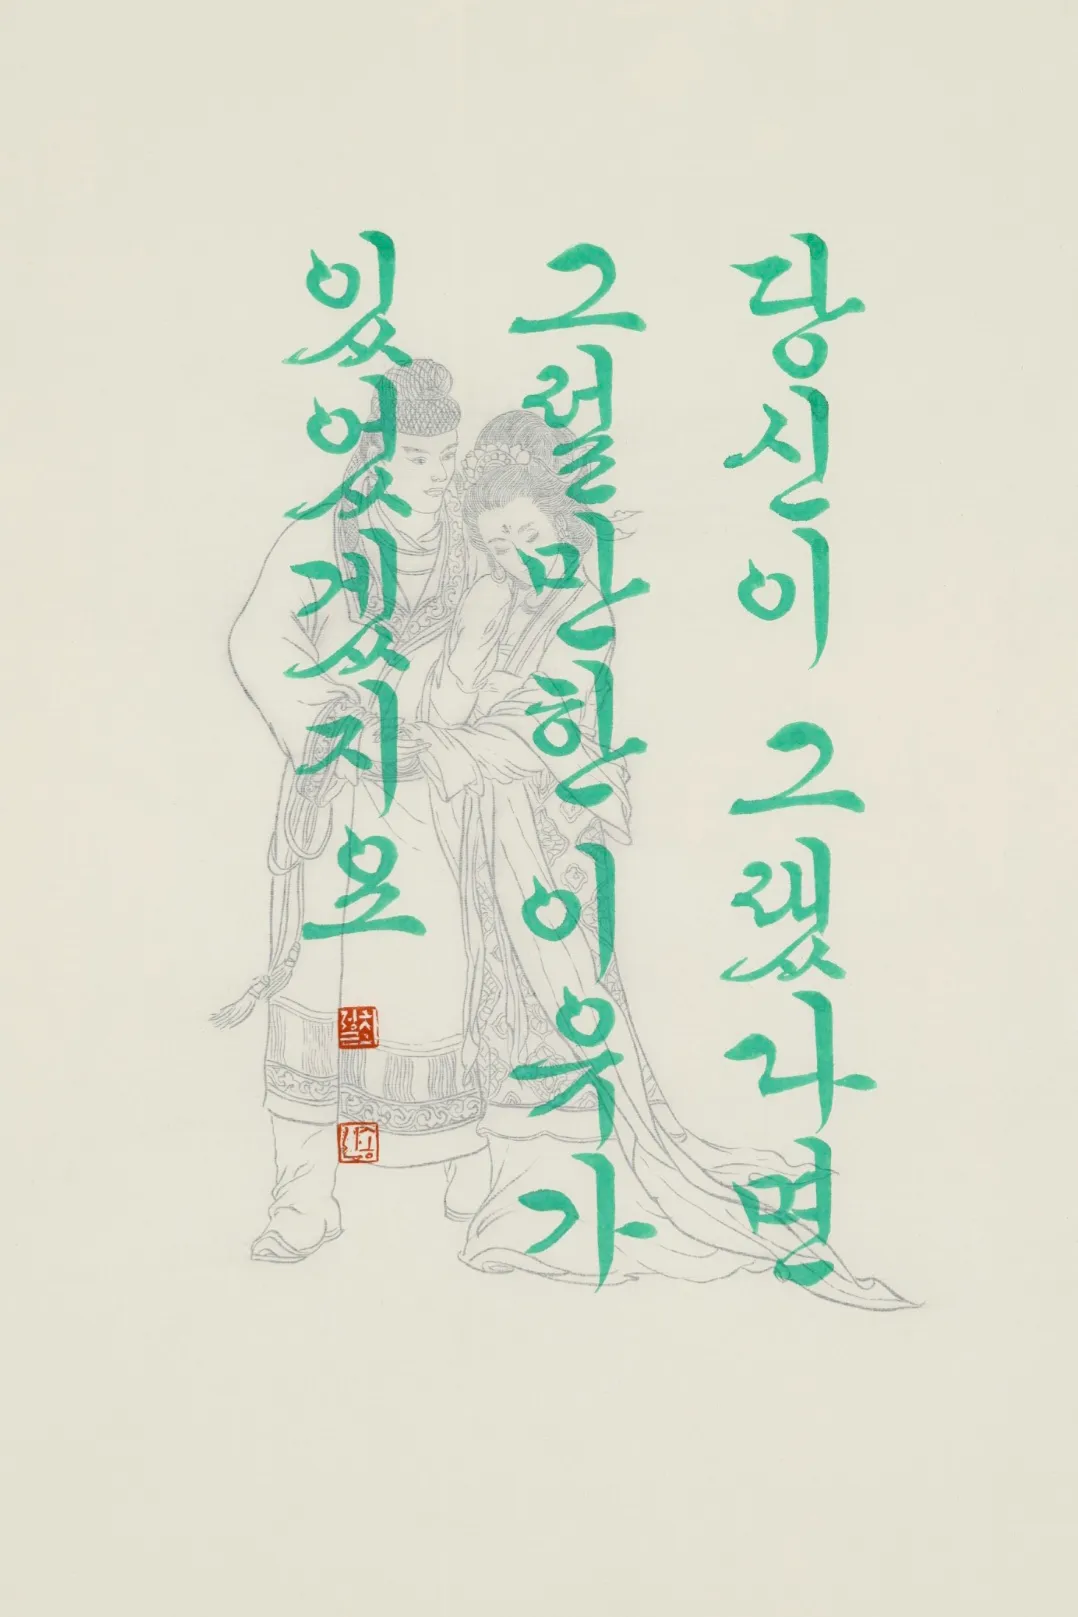 당신이 그랬다면
그럴만한 이유가
있었겠지요